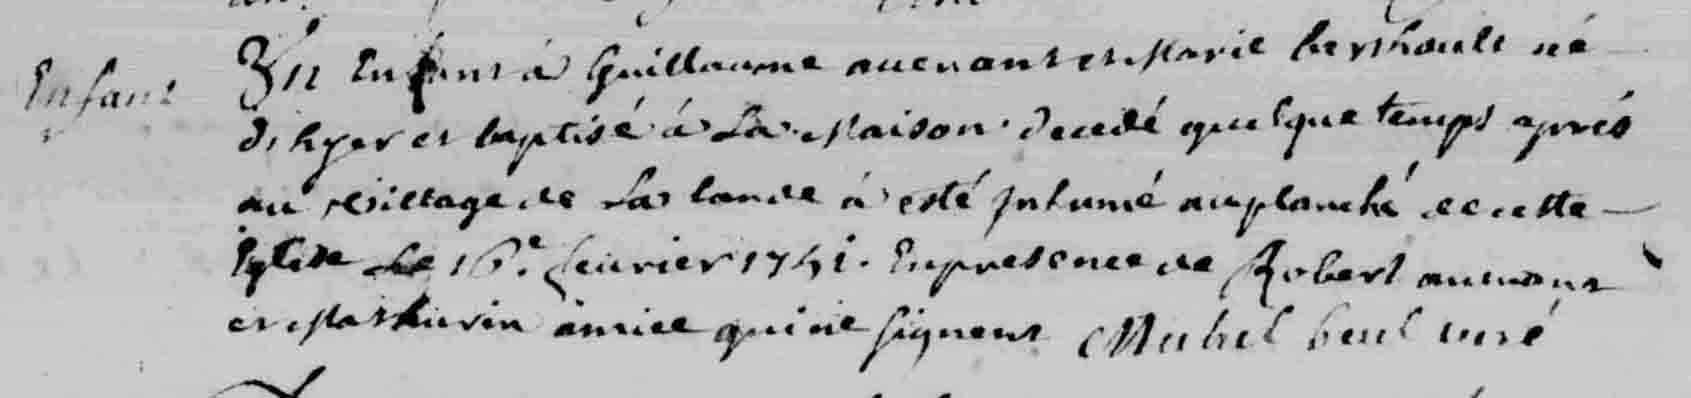 Enfant
Un Enfant à Guillaume auenant et Marie berthault né
d'hyer et baptisé à La Maison decedé quelque temps aprés
au village de La lande à esté Inhumé au planché de cette
Eglise Le 16e. feurier 1741. En presence de Robert auenant
et Mathurin amice qui ne signent Michel curé